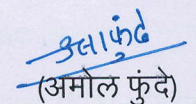 (अमोल फुंदे)